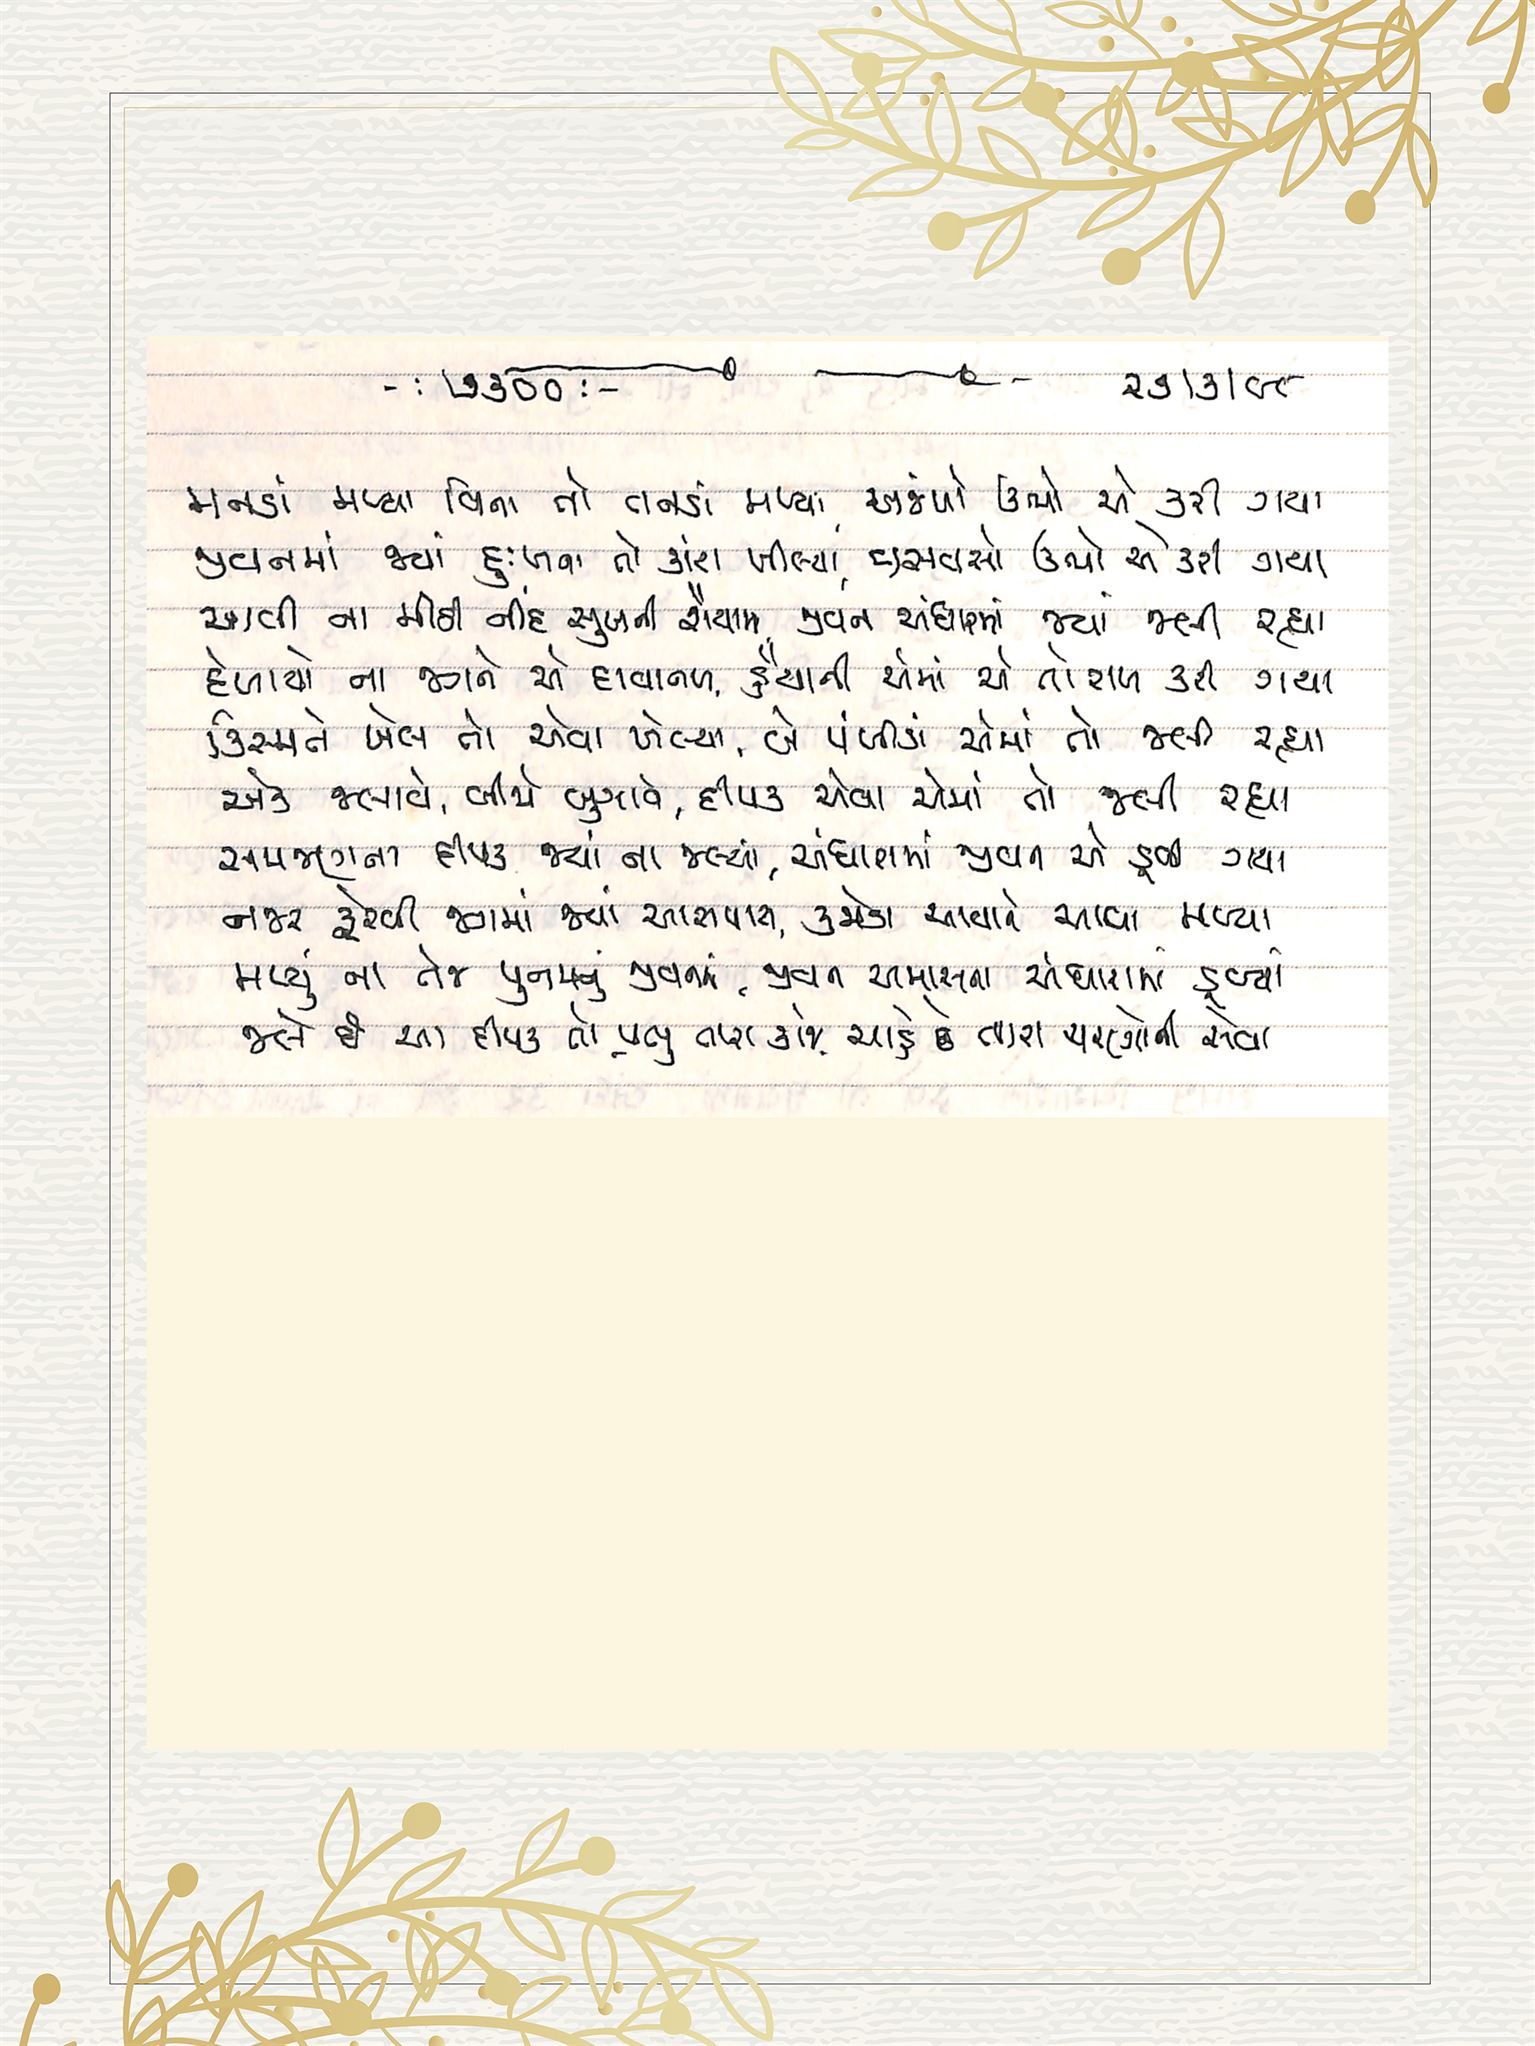 -: ૭૩૦૦ :- ૨૭/૩/૯૮
મનડાં મળ્યા વિના તો તનડાં મળ્યા, અજંપો ઊભો એ કરી ગયા
જીવનમાં જ્યાં દુઃખના તો કાંટા ખીલ્યાં, ઉભો એ કરી ગયા
આવી ના મીઠી નીંદ સુખની શૈયામાં, જીવન અંધારમાં જ્યાં જલી રહ્યા
દેખાયો ના જગને એ દાવાનળ, હૈયાની એમાં એ તો રાખ કરી ગયા
કિસ્મતે ખેલ તો એવા ખેલ્યા, બે પંખીડાં એમાં તો જલી રહ્યા
એક જલાવે, બીજો બુઝાવે, દીપક એવા એમાં તો જલી રહ્યા
સમજણના દીપક જ્યાં ના જલ્યાં, અંધારામાં જીવન એ ડૂબી ગયા
નજર ફેરવી જગમાં જ્યાં આસપાસ, કજોડા આવાને આવા મળ્યા
મળ્યું ના તેજ પુનમનું જીવનમાં, જીવન અમાસના અંધારામાં ડૂબ્યાં
જલે છે આ દીપક તો પ્રભુ તારા કાજે, ચાહે છે તારા ચરણોની સેવા